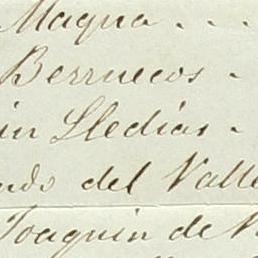 Magna . . .
Berruecos .
in Lledias .
ndo del Valle
Joaquin de